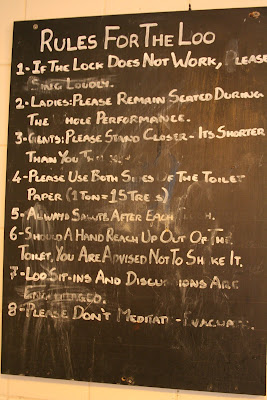 RULES FOR THE LOO
1-IF THE LOCK DOES NOT WORK, PLEASE
SING LOUDLY.
2-LADIES: PLEASE REMAIN SEATED DURING
THE WHOLE PERFORMANCE.
3-GENTS: PLEASE STAND CLOSER - ITS SHORTER
THAN YOU
4-PLEASE USE BOTH SIDES OF THE TOILET
PAPER (1 TON = 15 TREES)
5-ALWAYS SALUTE AFTER EACH
6-SHOULD A HAND REACH UP OUT OF THE
TOILET, YOU ARE ADVISED NOT TO SHAKE IT.
7-LOO SIT-INS AND DISCUSSIONS ARE
8-PLEASE DON'T MEDITATE - EVACUATE.